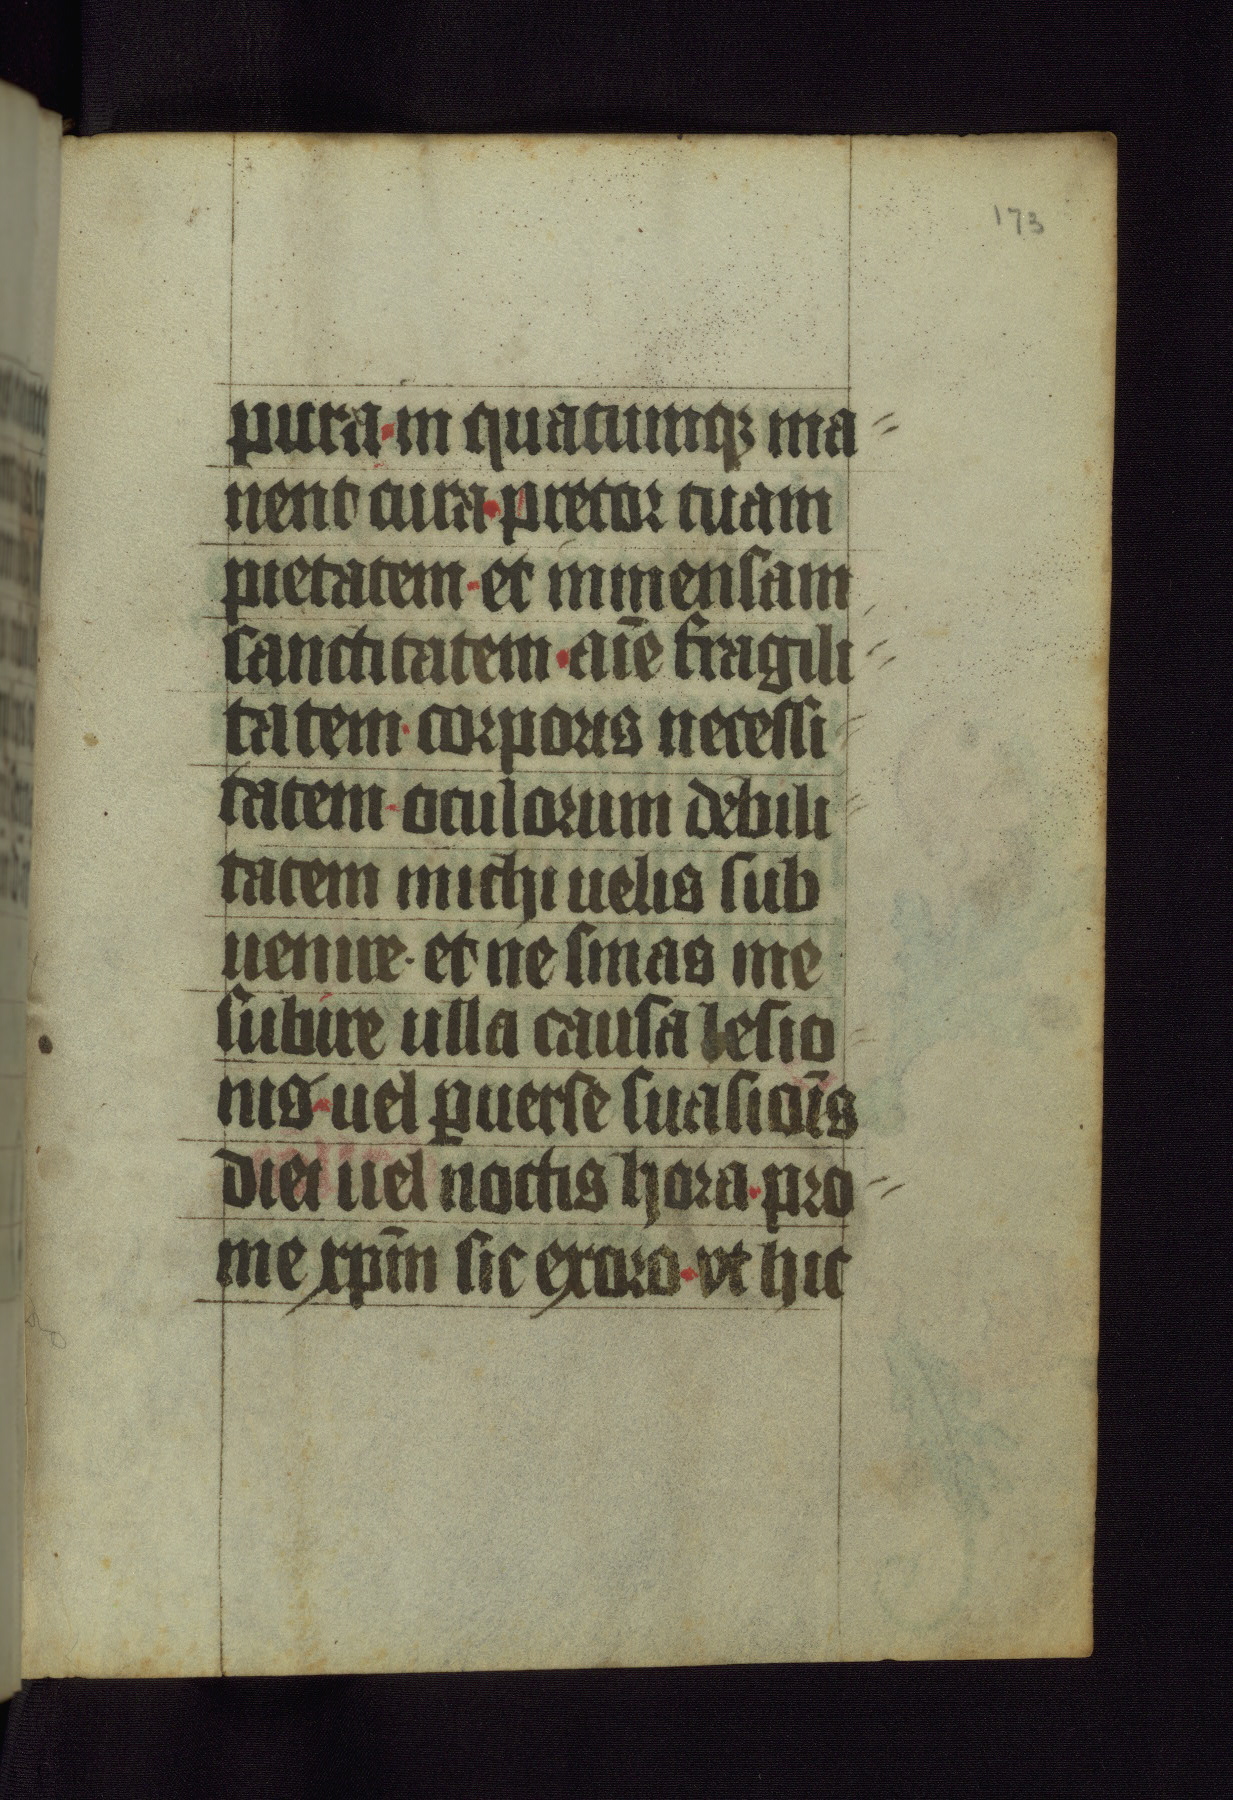 173
pura · in quacumqꝫ ma
nent cura · precor tuam
pietatem · et inmensam
sanctitatem · aīe fragili
tatem · corporis necessi
tatem · oculorum debili
tatem michi uelis sub
uenire · et ne sinas me
subire ulla causa lesio
nis · uel ꝑuerse suasiōīs
diei uel noctis hora · pro
me xpm̄ sic exoro · vt hic